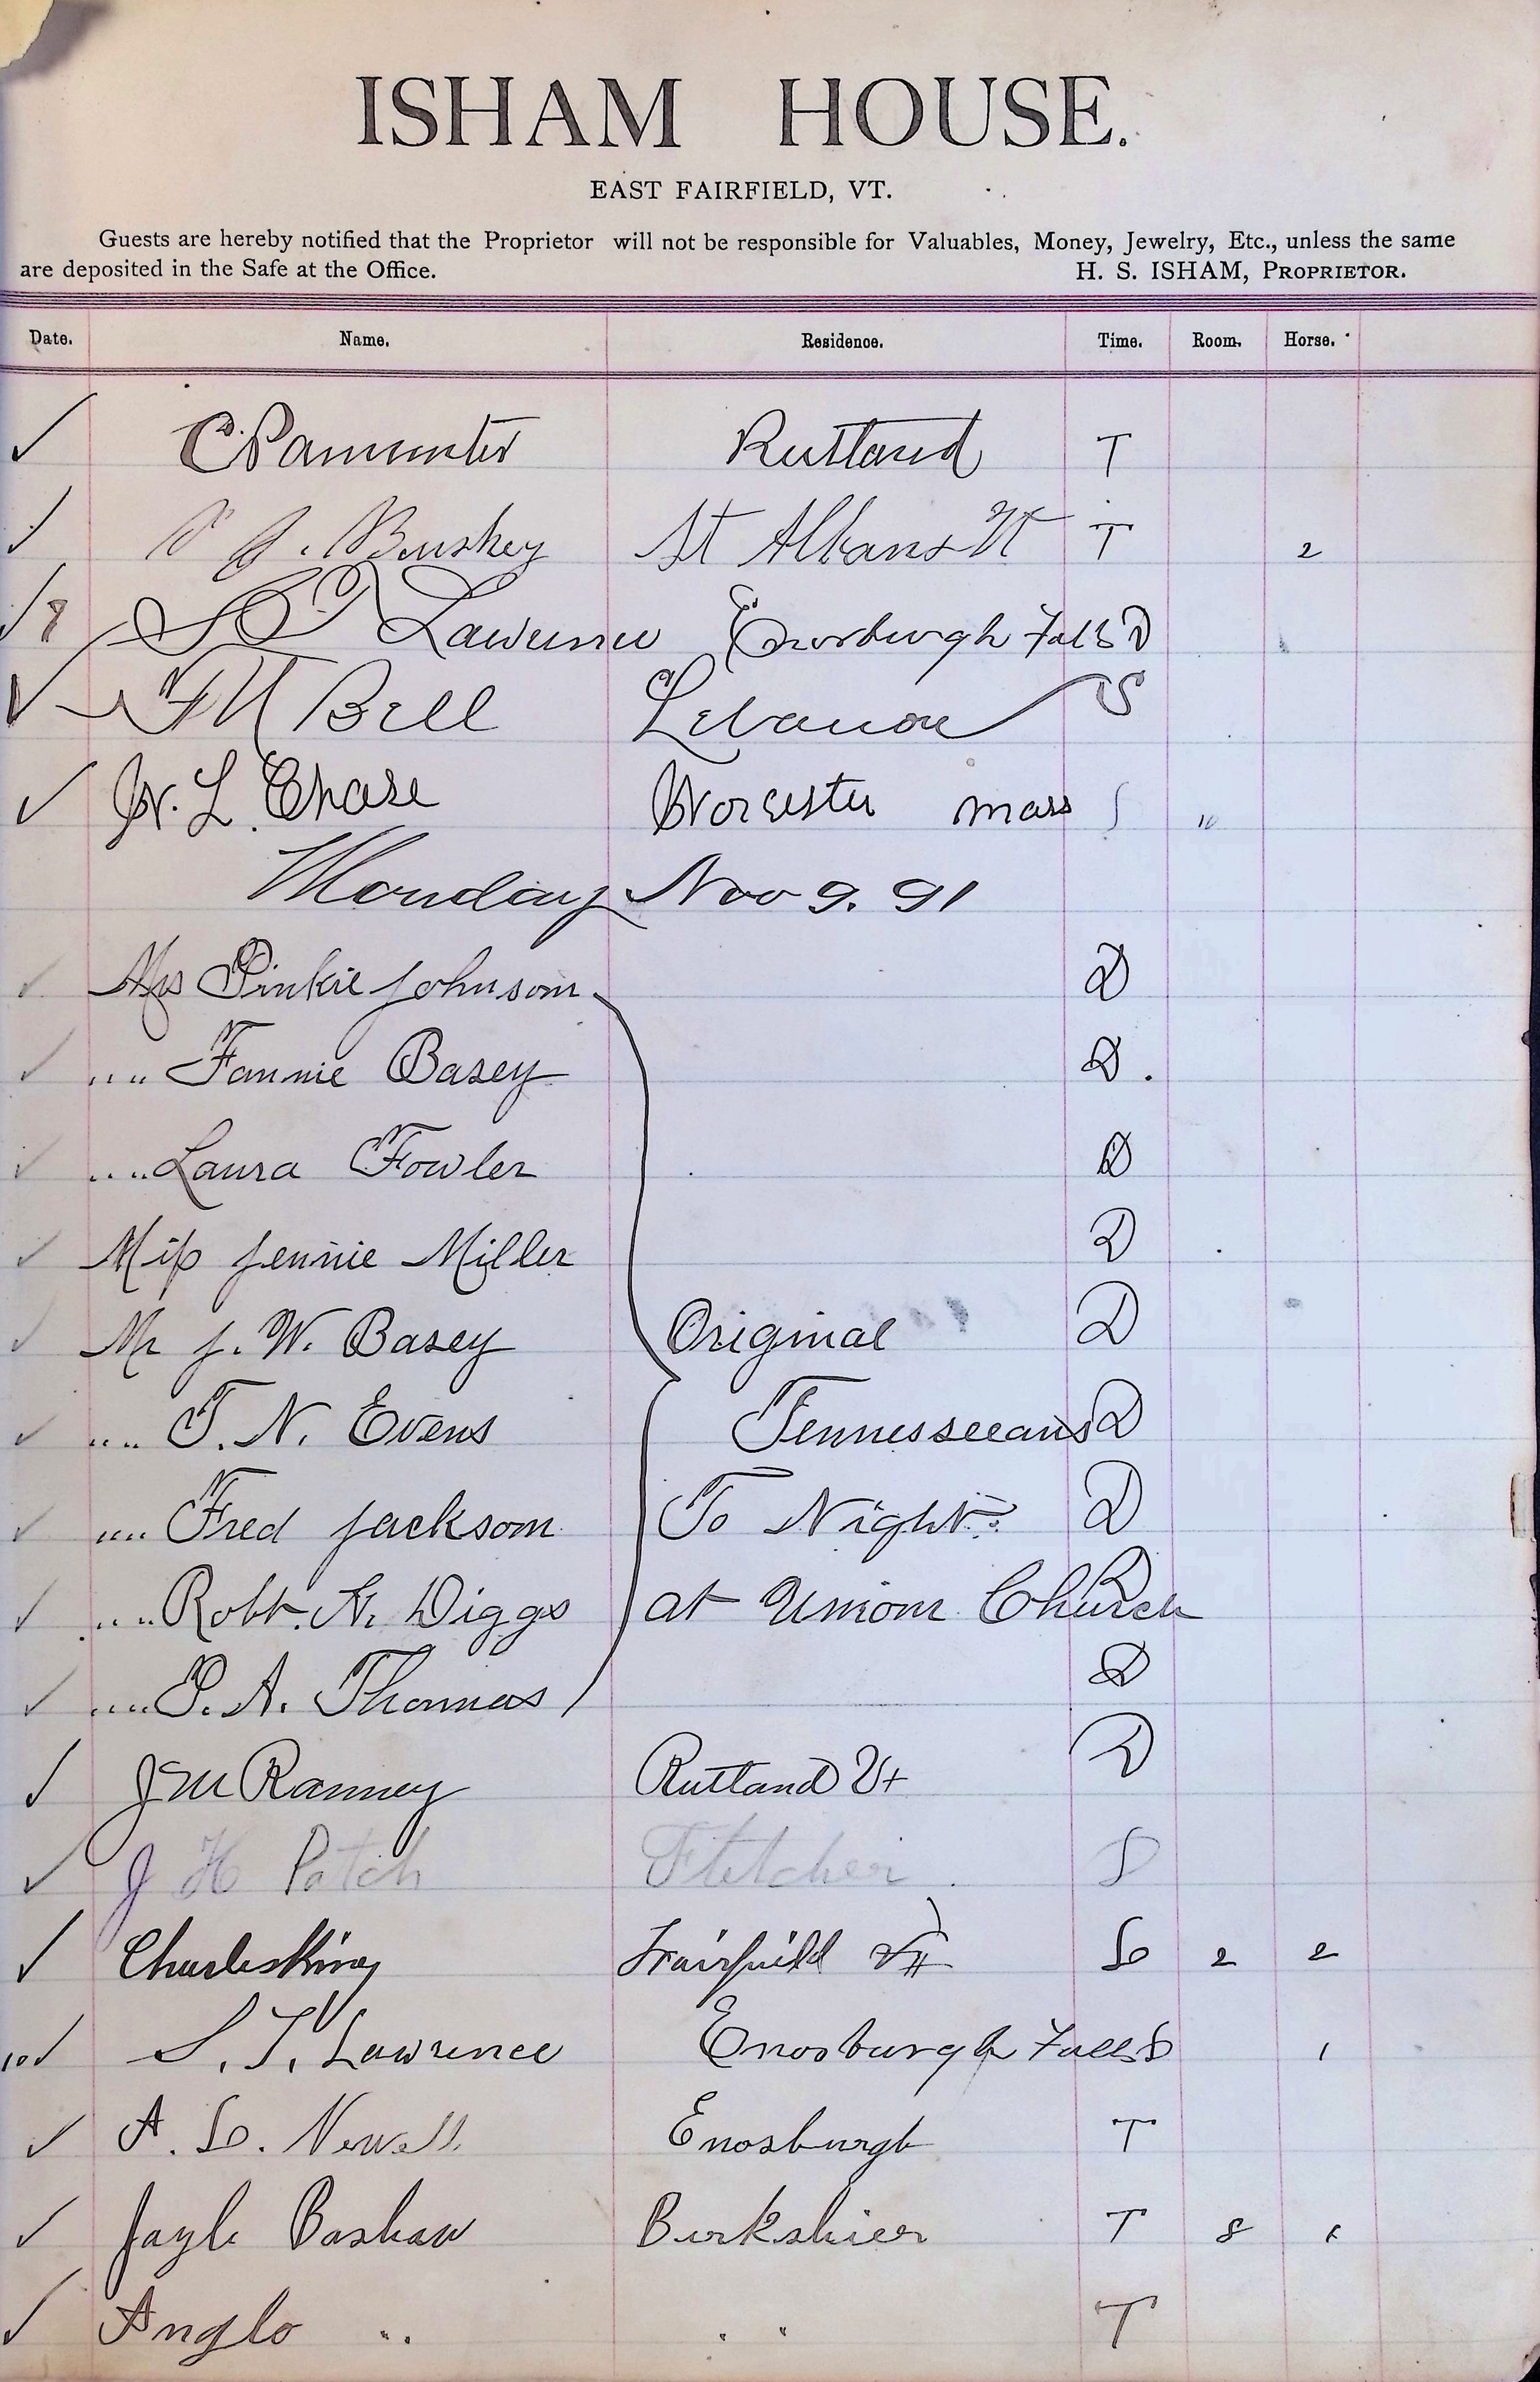 ISHAM HOUSE.
EAST FAIRFIELD, VT.
Guests are hereby notified that the Proprietor will not be responsible for Valuables, Money, Jewelry, Etc., unless the same
are deposited in the Safe at the Office. H. S. ISHAM, PROPRIETOR.
Date. Name. Residence. Time. Room. Horse.
C Parmenter Rutland T
J. Bushey St Albans Vt T 2
Lawrence Enosburgh Falls D
Bell Lebanon S
W. L. Chase Worcester Mass S 10
Monday Nov 9. 91
Mrs Pinkie Johnson D
" " Fannie Basey D
" " Laura Fowler D
Miss Jennie Miller D
Mr J. W. Basey Original D
" " T. N. Evens Tennesseeans D
" " Fred Jackson To Night D
" " Robt. H. Diggs at Union Church
" " P. A. Thomas D
J M Ranney Rutland Vt D
J H Patch Fletcher S
Charles King Fairfield Vt L 2 2
S. T. Lawrence Enosburgh Falls 1
A. L. Newell Enosburgh T
Bashaw Berkshier T 8
Anglo " " " T